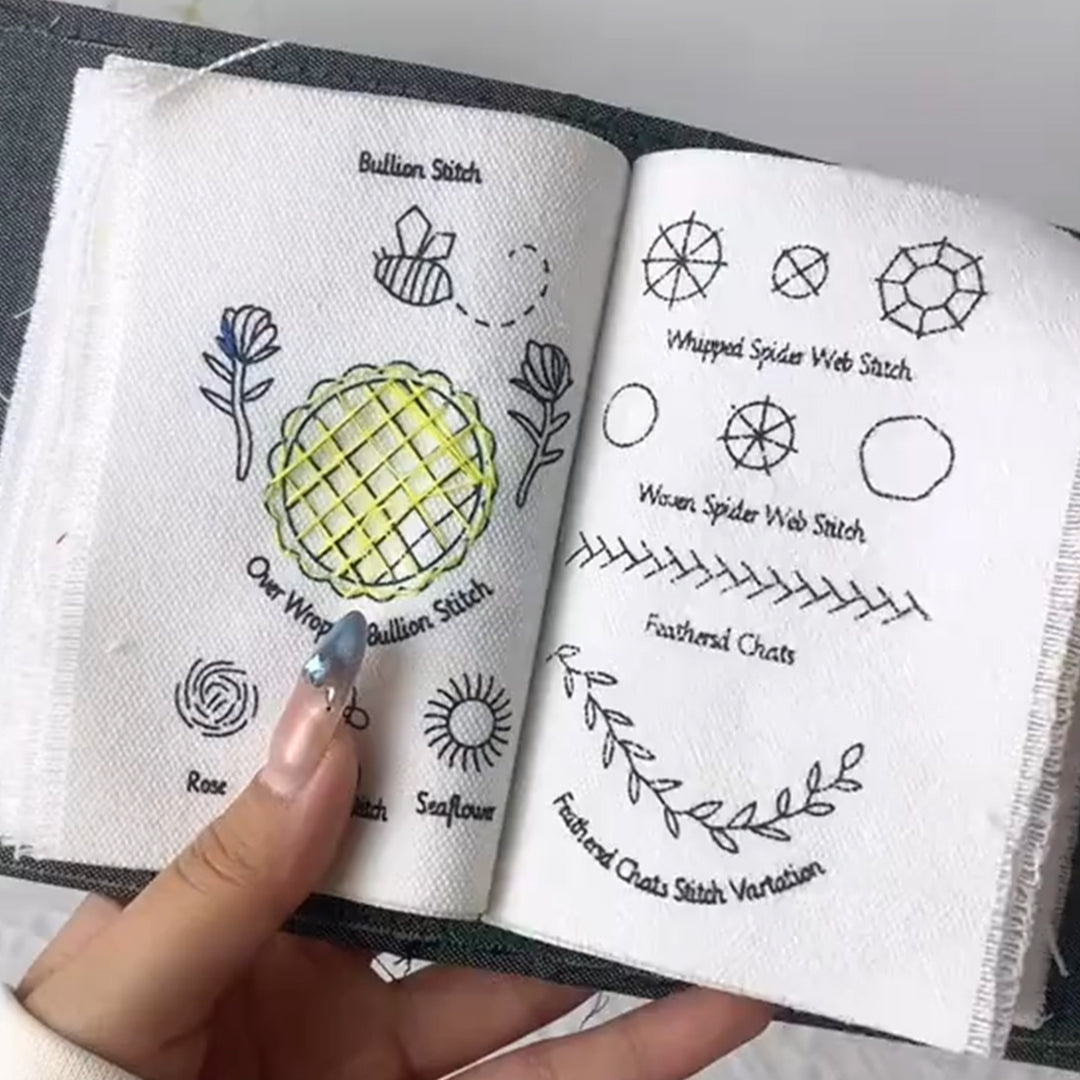 Bullion Stitch
Over Wrop Bullion Stitch
Rose
Seaflower
Whipped Spider Web Stitch
Woven Spider Web Stitch
Feathersd Chats
Feathersd Chats Stitch Vartation